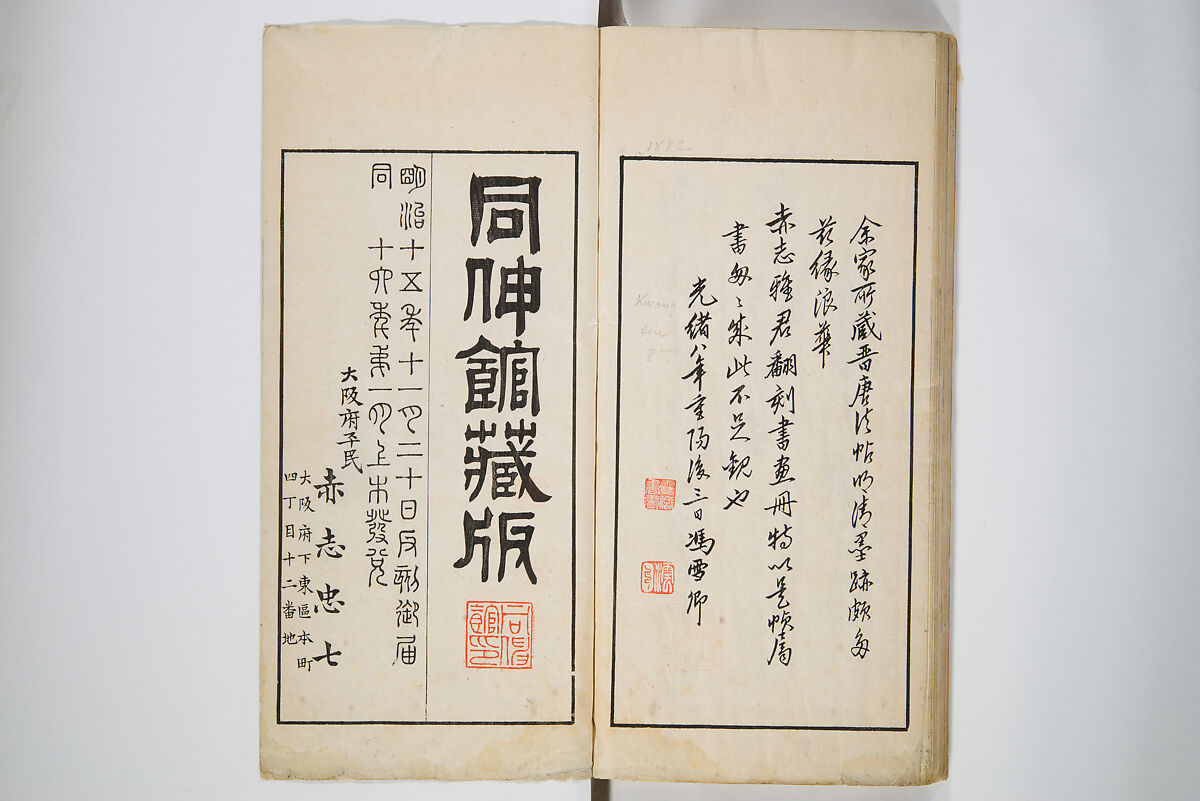 1882
余家所藏晋唐法帖明清墨跡頗多
茲緣浪華
赤志雅君翻刻書畫冊特以是幀属
書匆〻此不足観也
光緒八年重陽後三日馮雪卿
Kwong
8
同伸館藏版
同伸館印
明治十五年十一月二十日反刻御届
同十六年第一月上木發兌
大阪府平民
赤志忠七
大阪府下東區本町
四丁目十二番地